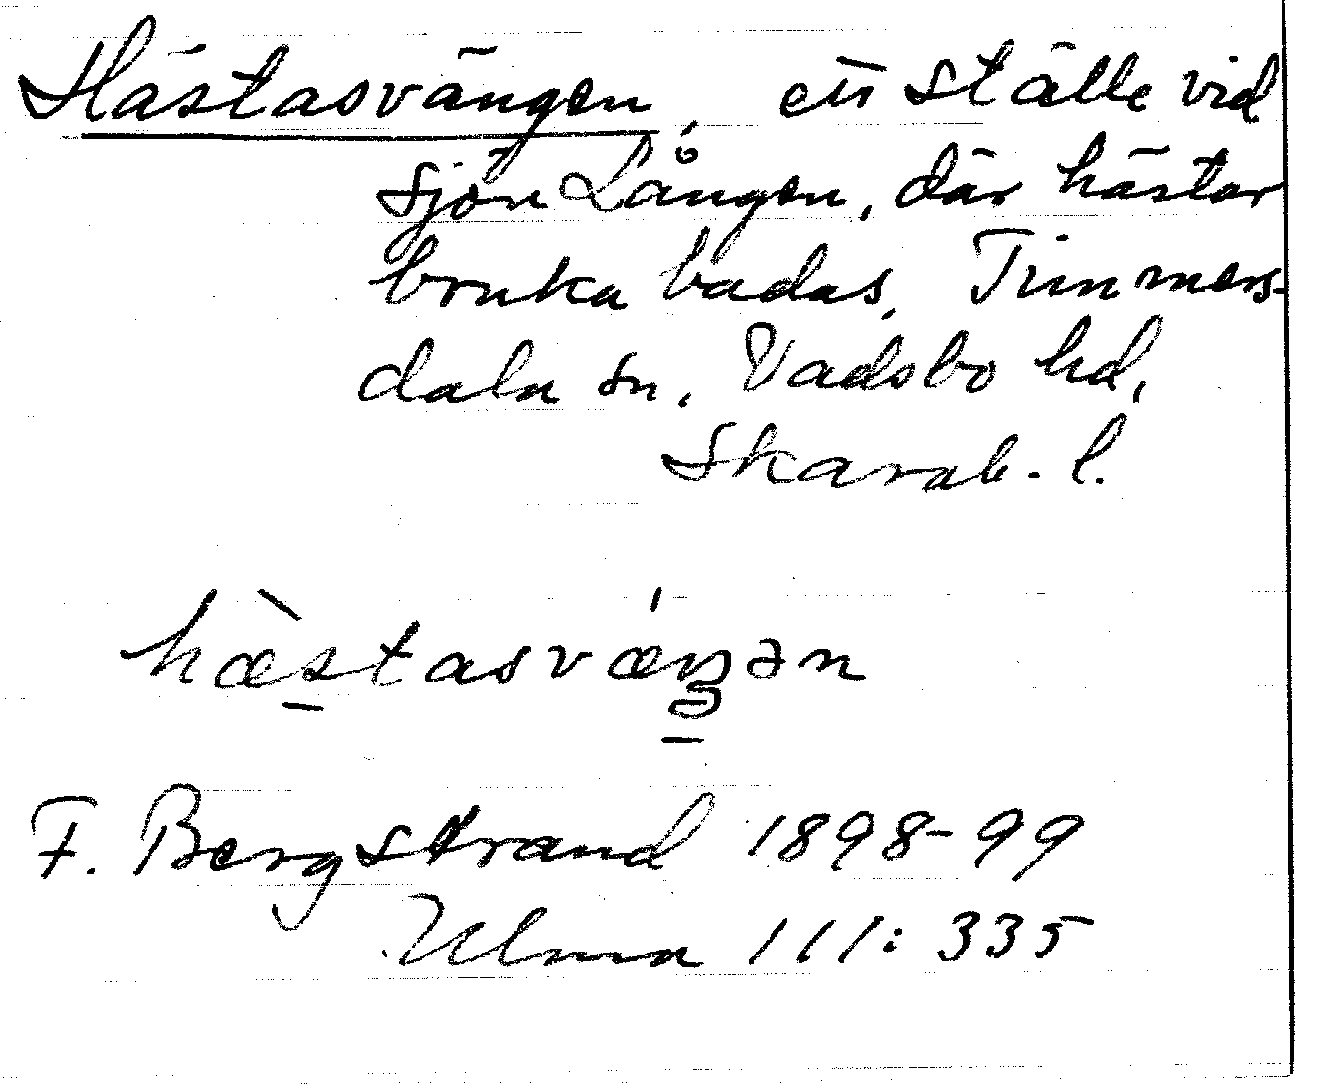 Hästasvängen, ett ställe vid
sjön Lången, där hästar
bruka badas, Timmers-
dala sn, Vadsbo hd,
Skarab. l.
hæ̀stasvǽŋən
F. Bergstrand 1898-99
Ulma 111:335